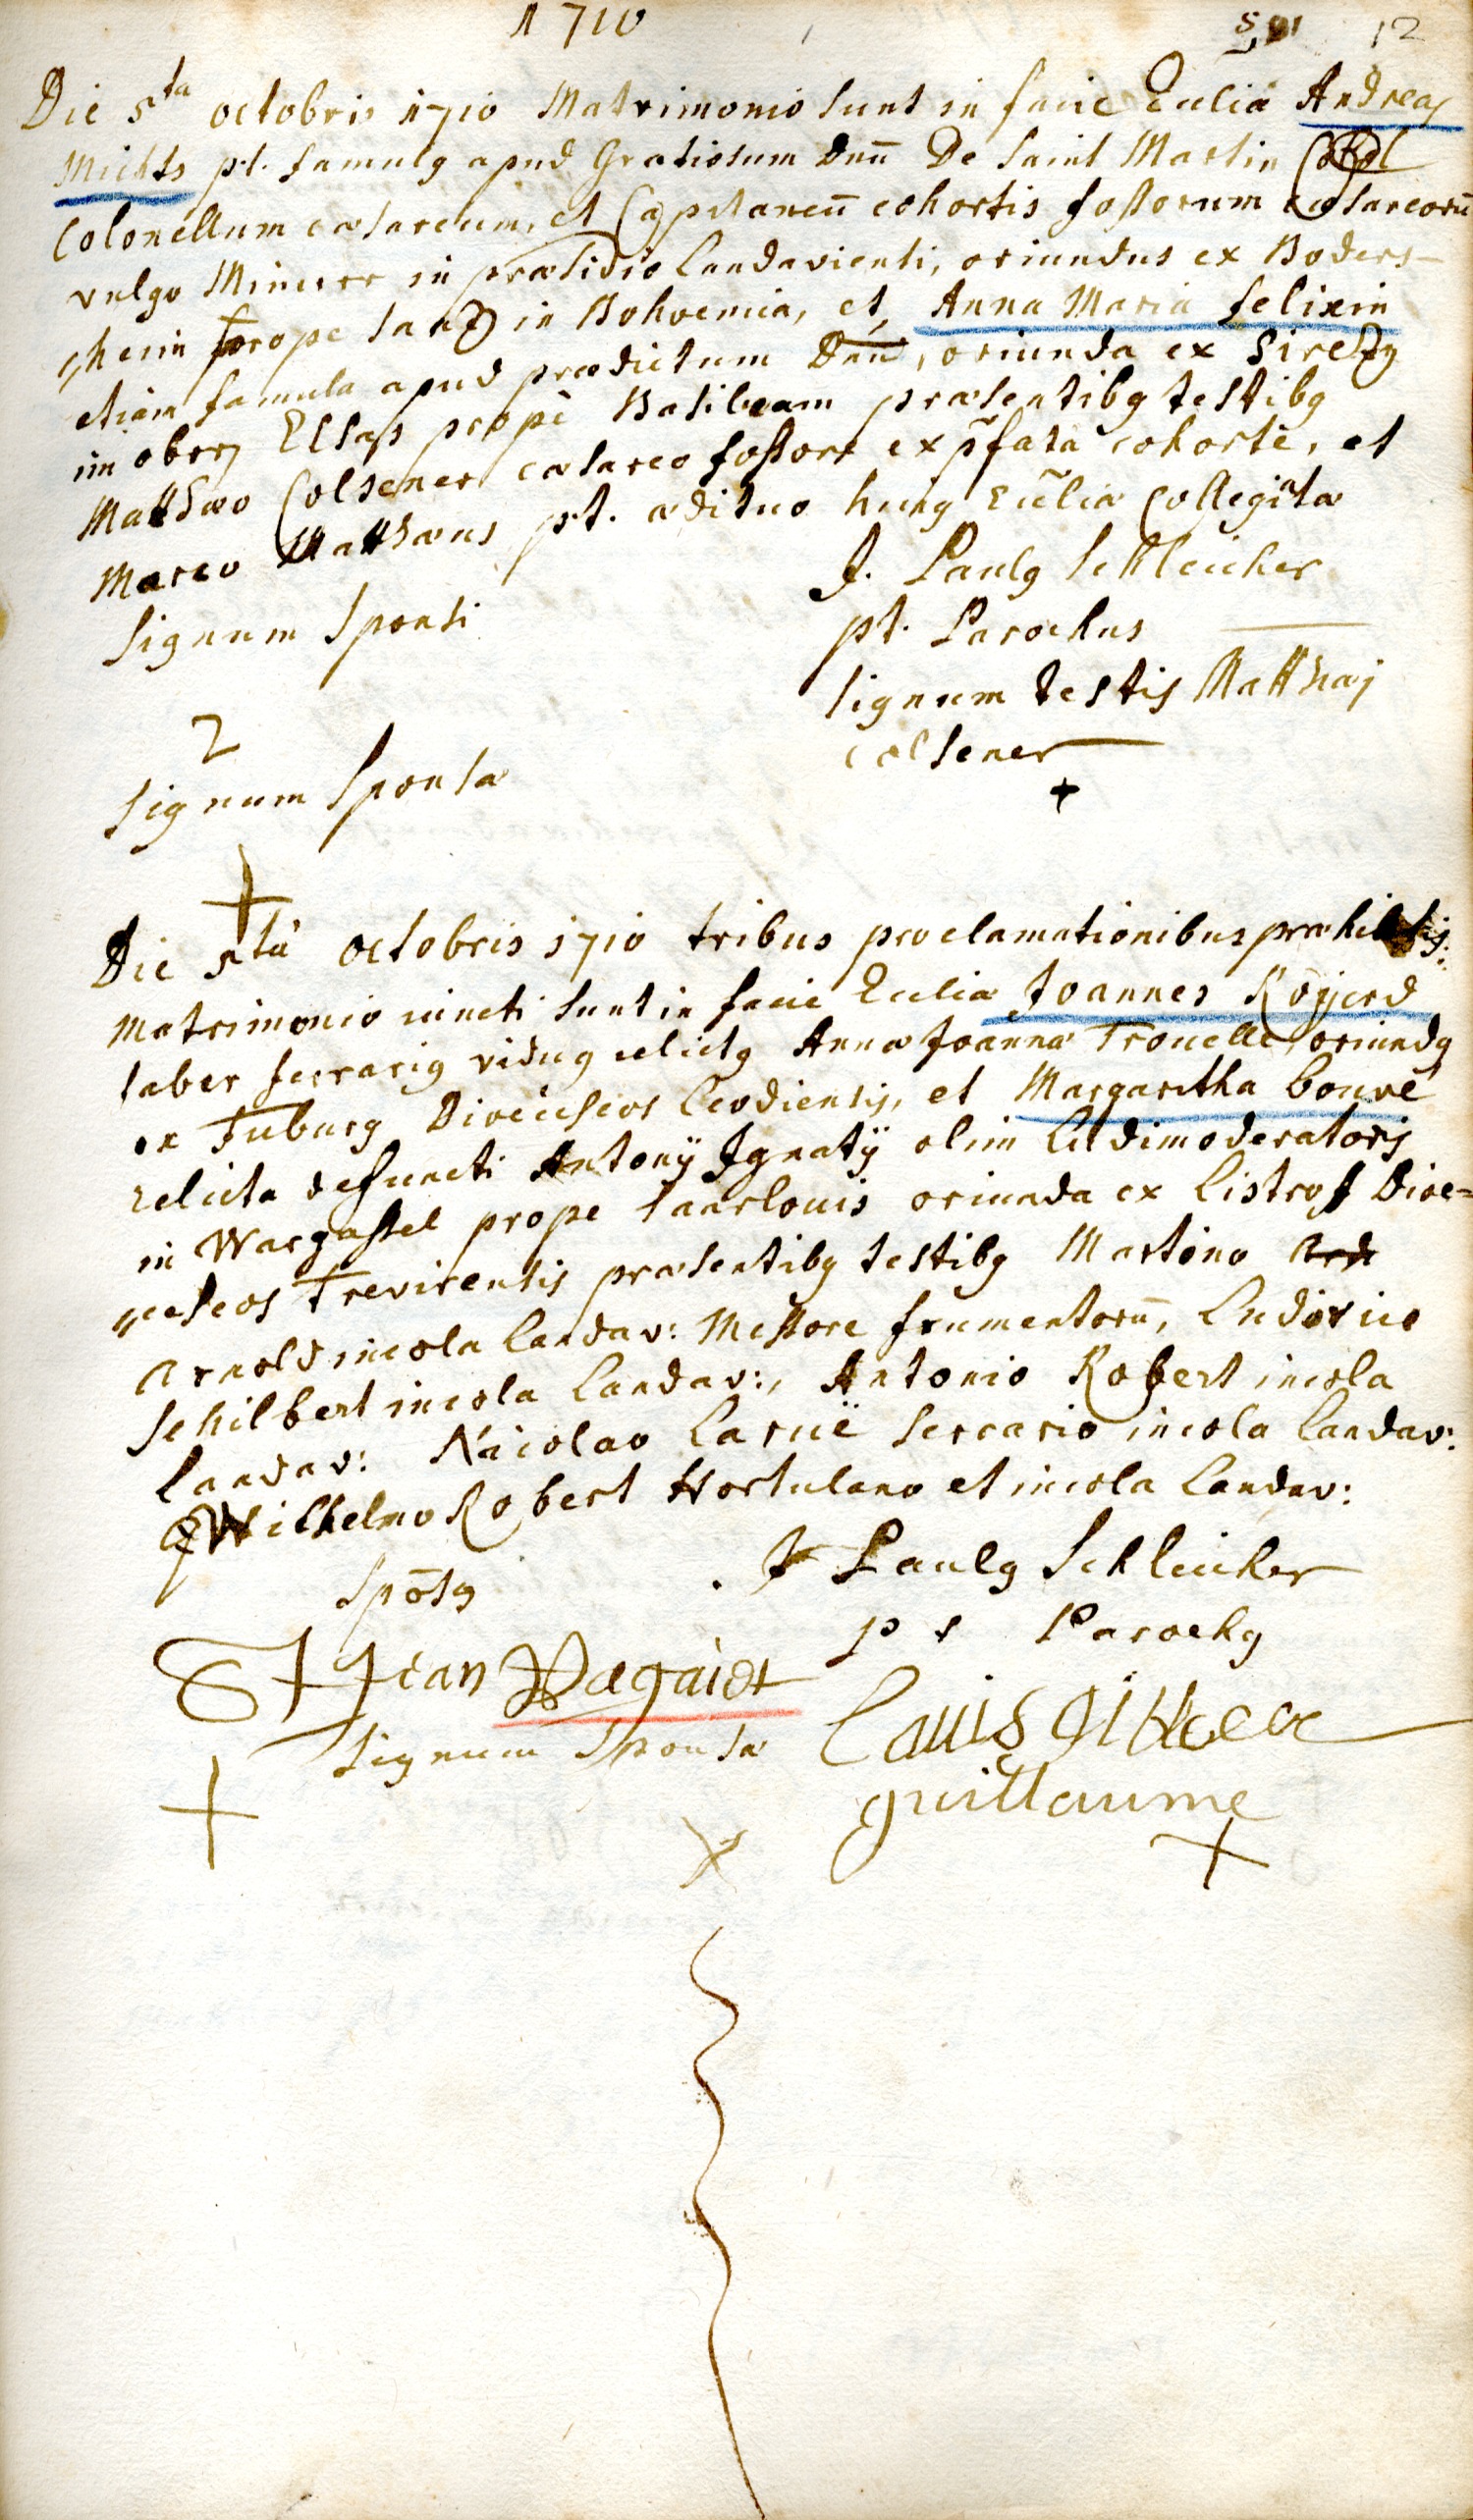 1710
12
Die 5ta octobris 1710 Matrimonio sunt in facie Eccliæ Andreas
Michts p.t. famulg apud Gratiosum Dnū De Saint Martin
Colonellum cæsareum, et Capitaneū cohortis fossorum cæsareorū
vulgo Mineurs in præsidio Landaviensi, oriundus ex Boders-
cherin prope Saatz in Bohoemia, et Anna Maria felixin
etiam famula apud prædictum Dnū, oriunda ex Siretzg
im obern Elsass propè Basileam præsentibg testibg
Matthæo Colsener cæsareo fossore ex p̄fata cohorte, et
Marco Matthæus p.t. ædituo huig Eccliæ Collegiatæ
J. Paulg Schleicher
Signum Sponsi
pt. Parochus
signum testis Matthæj
2
Colsener
signum Sponsæ
+
+
Die 5ta octobris 1710 tribus proclamationibus præhabitis
Matrimonio iuncti sunt in facie Eccliæ Joannes Rogierd
faber ferrarig vidug relictg Annæ Joannæ Trouelle, oriundg
ex Fuburg Dioeceseos Leodiensis, et Margaretha Bouvé
relicta defuncti Antonÿ Ignatÿ olim Ludimoderatoris
in Wargassel prope Saarlouis oriunda ex Listrof Dioe=
ceseos Trevirensis præsentibg testibg Martino
Arnold incola Landav: Messore frumentorū, Ludovico
Schilbert incola Landav:, Antonio Robert incola
Landav: Nicolao Laruë serrario incola Landav:
Wilhelmo Robert Hortulano et incola Landav:
Spōsg
J Paulg Schleicher
pt Parochg
Jean Ragaidt
signum Sponsæ
Lauis
guillaume
+
+
+